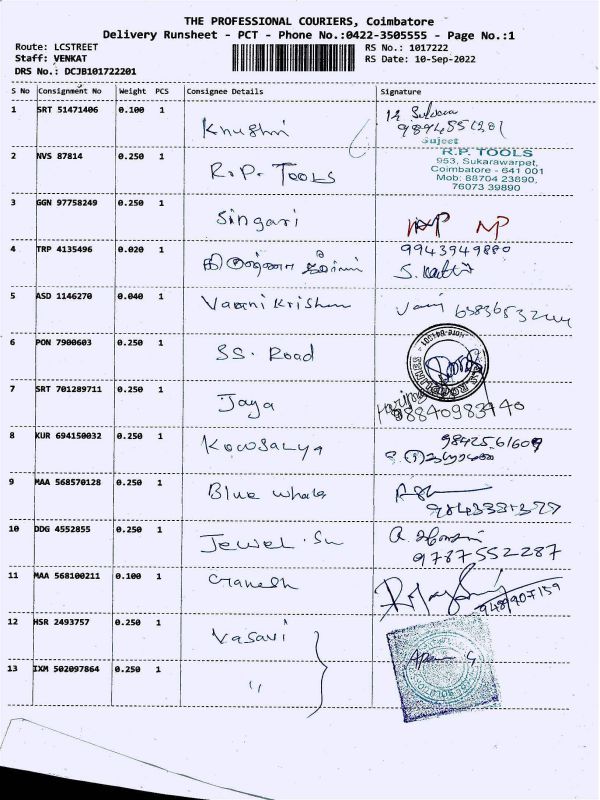 THE PROFESSIONAL COURIERS, Coimbatore
Delivery Runsheet - PCT - Phone No.:0422-3505555 - Page No.:1
Route: LCSTREET RS No.: 1017222
Staff: VENKAT RS Date: 10-Sep-2022
DRS No.: DCJB101722201
S No Consignment No Weight PCS Consignee Details Signature
1 SRT 51471406 0.100 1 Khushi
2 NVS 87814 0.250 1 R.P. TOOLS
Sujeet
R.P. TOOLS
953, Sukarawarpet,
Coimbatore - 641 001
Mob: 88704 23890,
76073 39890
3 GGN 97758249 0.250 1 Singari
4 TRP 4135496 0.020 1
9943949880
5 ASD 1146270 0.040 1
6 PON 7900603 0.250 1 SS. Road
7 SRT 701289711 0.250 1 Jaya
8 KUR 694150032 0.250 1 Kowsalya
9842561609
9 MAA 568570128 0.250 1 Blue Whale
10 DDG 4552855 0.250 1 Jewel.
9787552287
11 MAA 568100211 0.100 1 Ganesh
9489907159
12 HSR 2493757 0.250 1 Vasavi
13 IXM 502097864 0.250 1 "